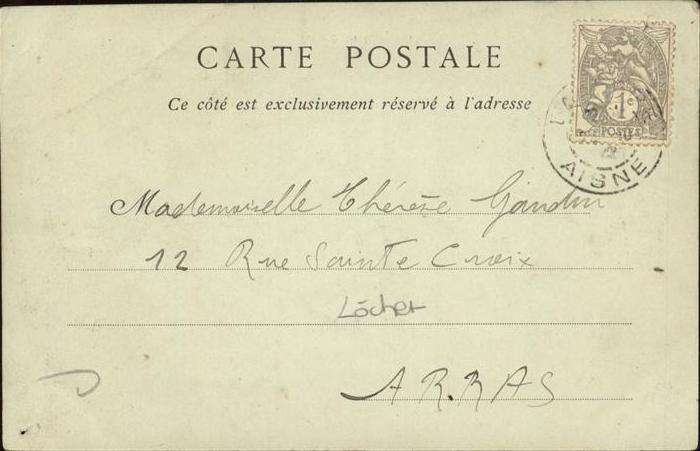 CARTE POSTALE
Ce côté est exclusivement réservé à l'adresse
1c
POSTES
AISNE
Mademoiselle Thérèse Gaudin
12 Rue Sainte Croix
Löcher
ARRAS